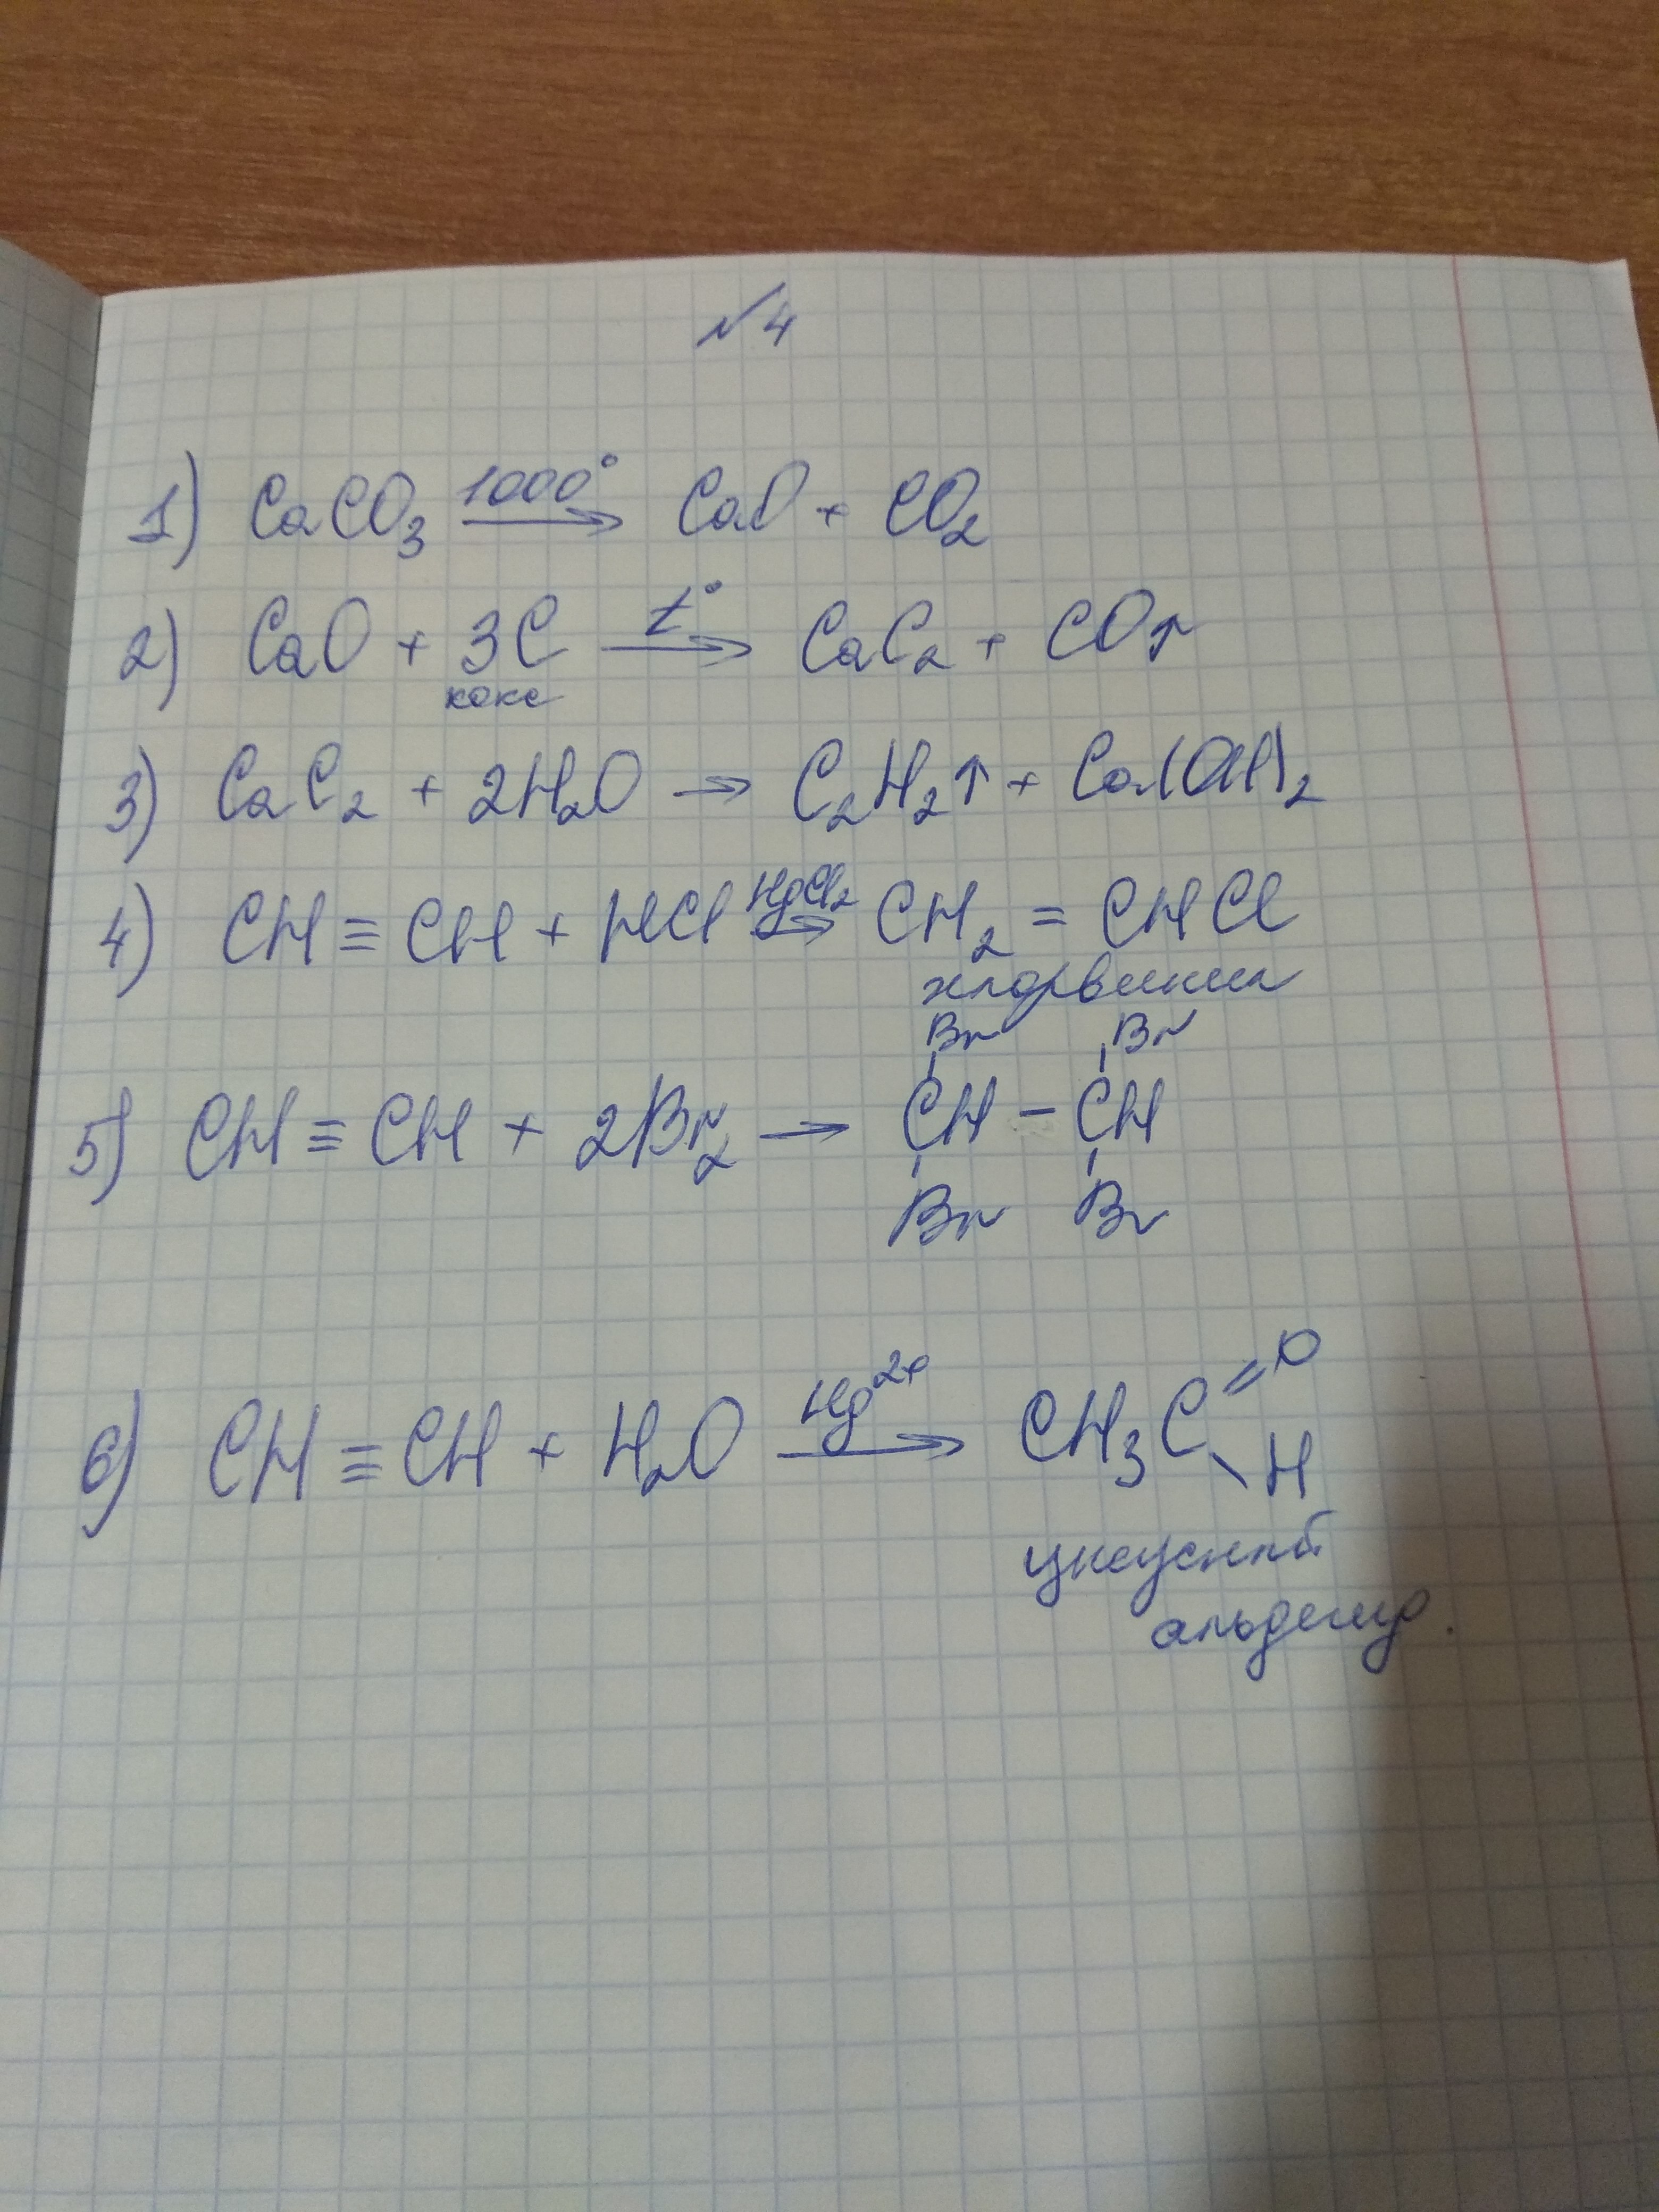 №4
1) CaCO₃ 1000° → CaO + CO₂
2) CaO + 3C t° → CaC₂ + CO↑
кокс
3) CaC₂ + 2H₂O → C₂H₂↑ + Ca(OH)₂
4) CH ≡ CH + HCl HgCl₂ → CH₂ = CHCl
хлорвинил
Br Br
5) CH ≡ CH + 2Br₂ → CH – CH
Br Br
6) CH ≡ CH + H₂O Hg²⁺ → CH₃C =O \H
уксусный
альдегид.